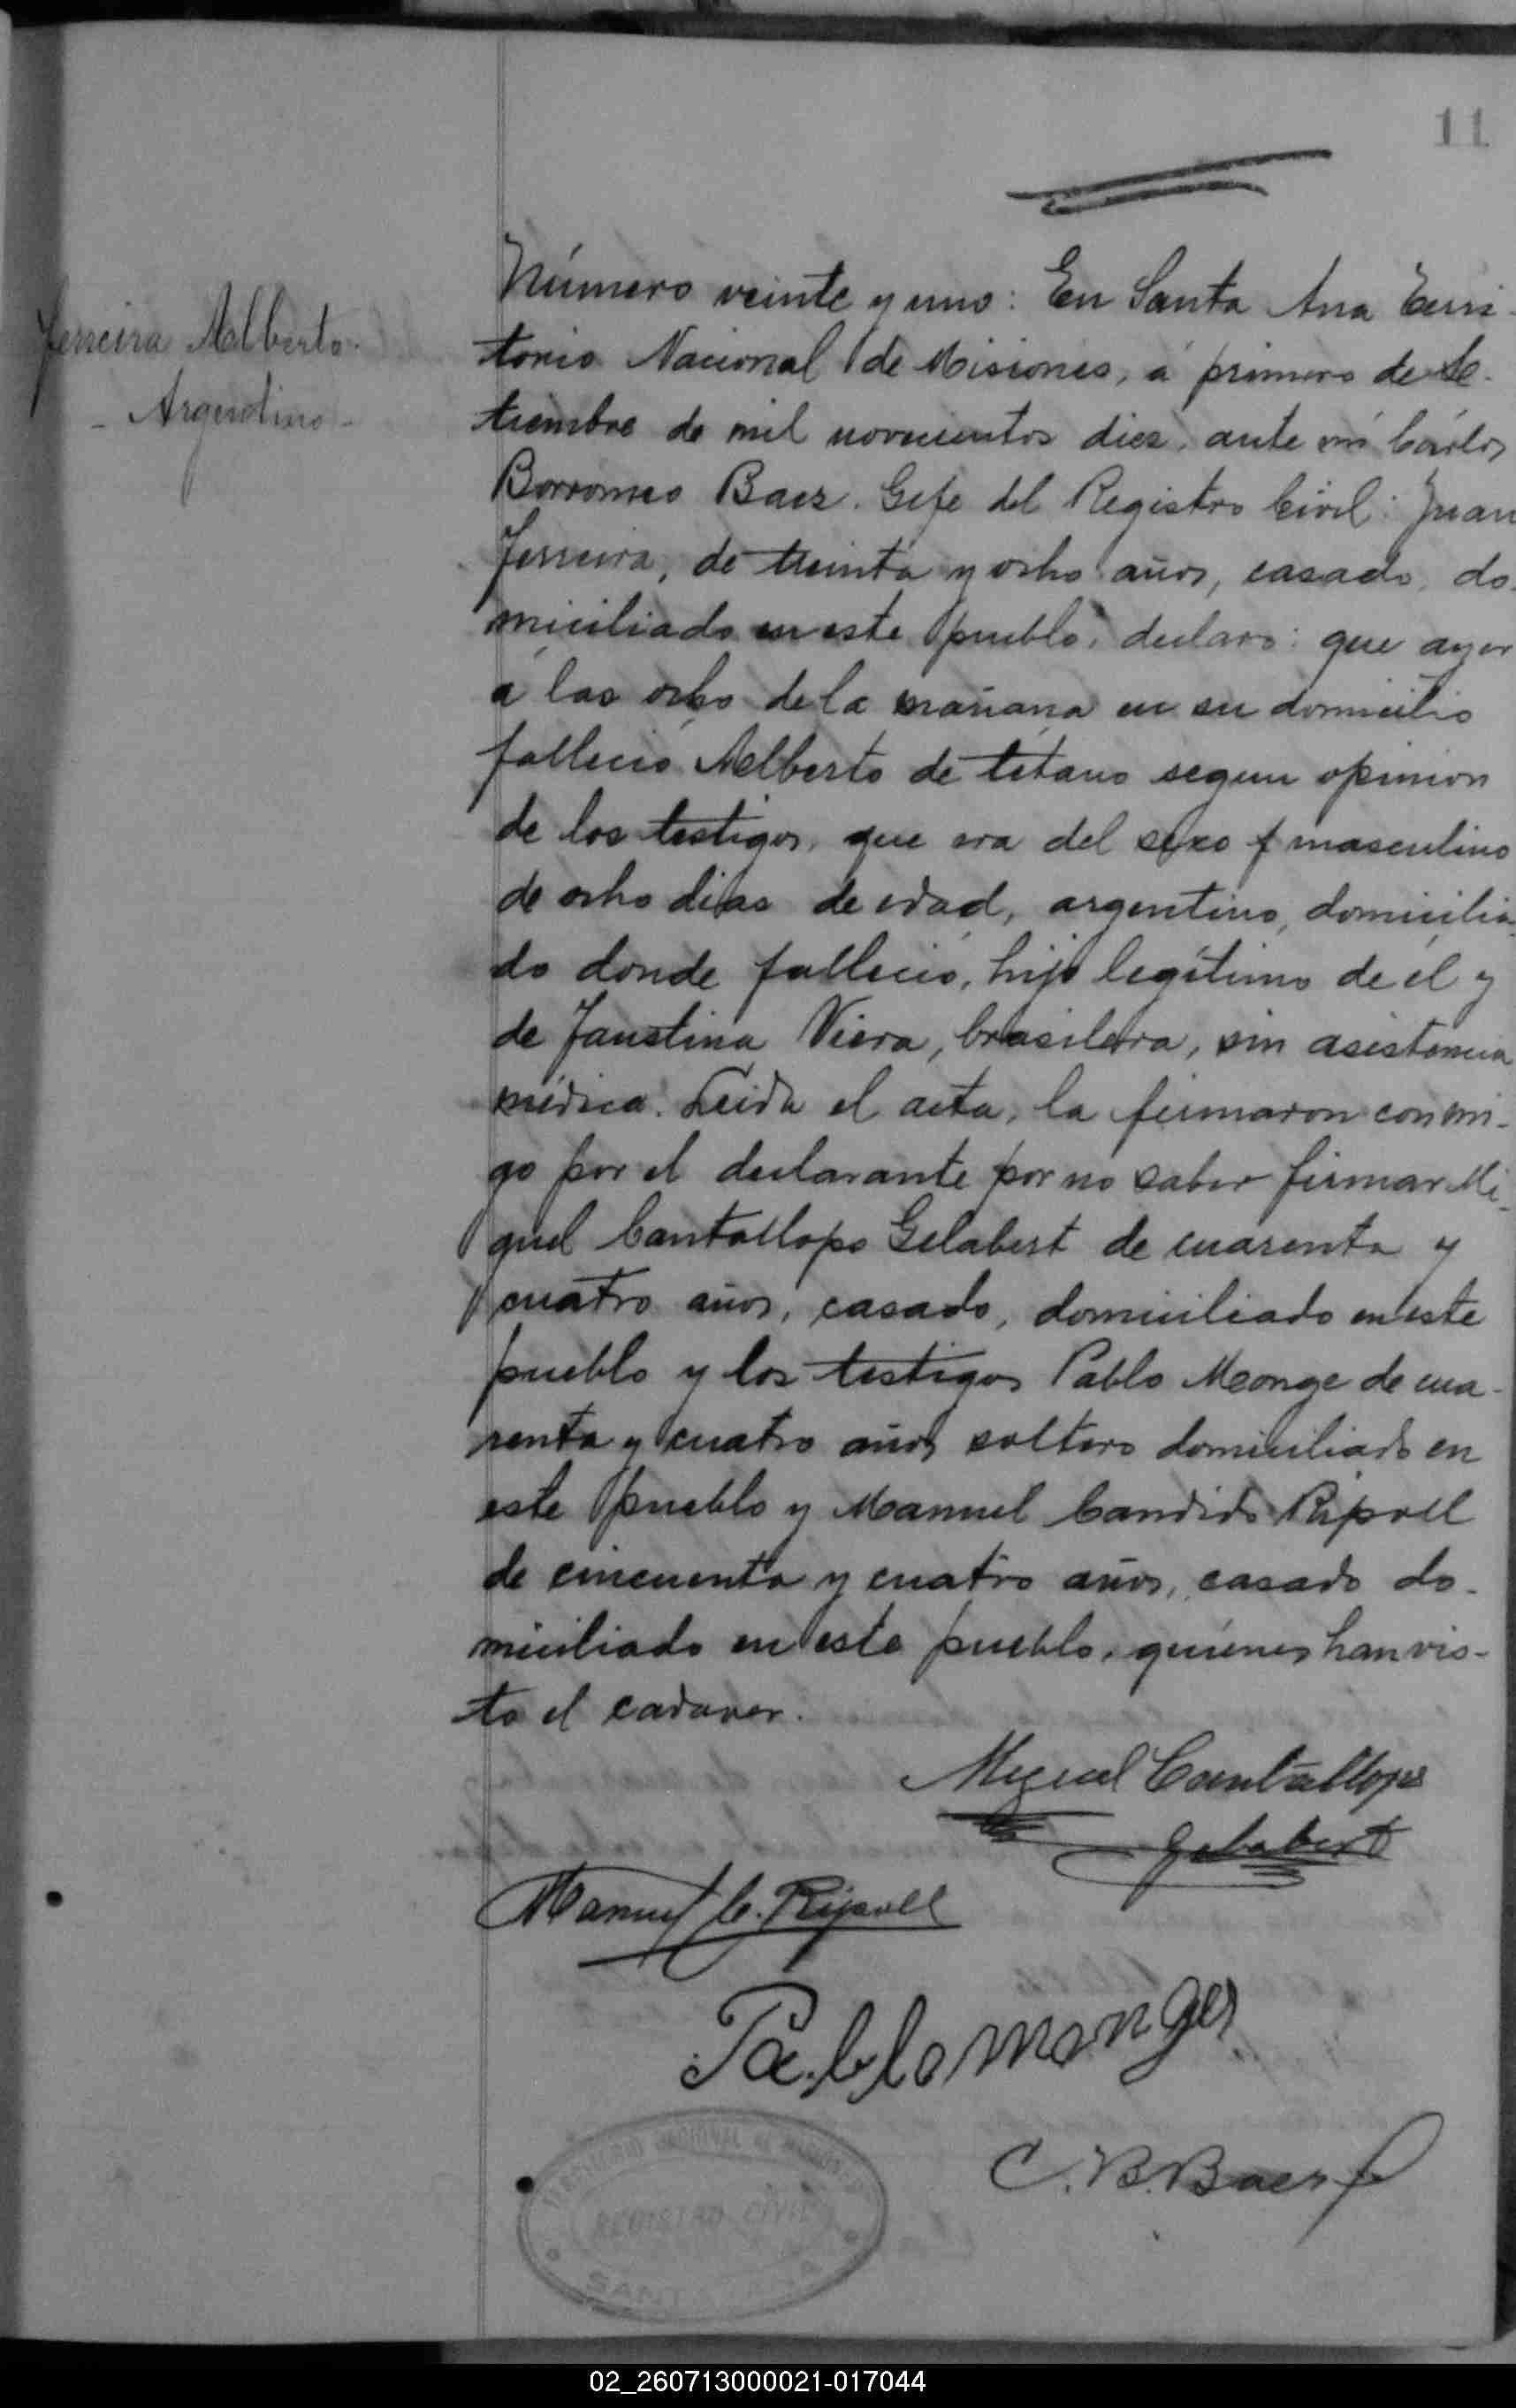 11
Ferreira Alberto.
- Argentino -
Número veinte y uno: En Santa Ana Terri-
torio Nacional de Misiones, á primero de Se-
tiembre de mil novecientos diez, ante mí Cárlos
Borromeo Baez. Gefe del Registro Civil: Juan
Ferreira, de treinta y ocho años, casado, do-
miciliado en este pueblo, declaró: que ayer
á las ocho de la mañana en su domicilio
falleció Alberto de tétano segun opinion
de los testigos, que era del sexo f masculino
de ocho dias de edad, argentino, domicilia-
do donde falleció, hijo legítimo de él y
de Faustina Viera, brasilera, sin asistencia
médica. Leida el acta, la firmaron conmi-
go por el declarante por no saber firmar Mi-
guel Cantallops Gelabert de cuarenta y
cuatro años, casado, domiciliado en este
pueblo y los testigos Pablo Monge de cua-
renta y cuatro años soltero domiciliado en
este pueblo y Manuel Candido Ripoll
de cincuenta y cuatro años, casado do-
miciliado en este pueblo, quienes han vis-
to el cadaver.
Miguel Cantallops
Gelabert
Manuel C. Ripoll
Pablo monges
C. B. Baez
TERRITORIO NACIONAL DE MISIONES
REGISTRO CIVIL
SANTA ANA
02_260713000021-017044